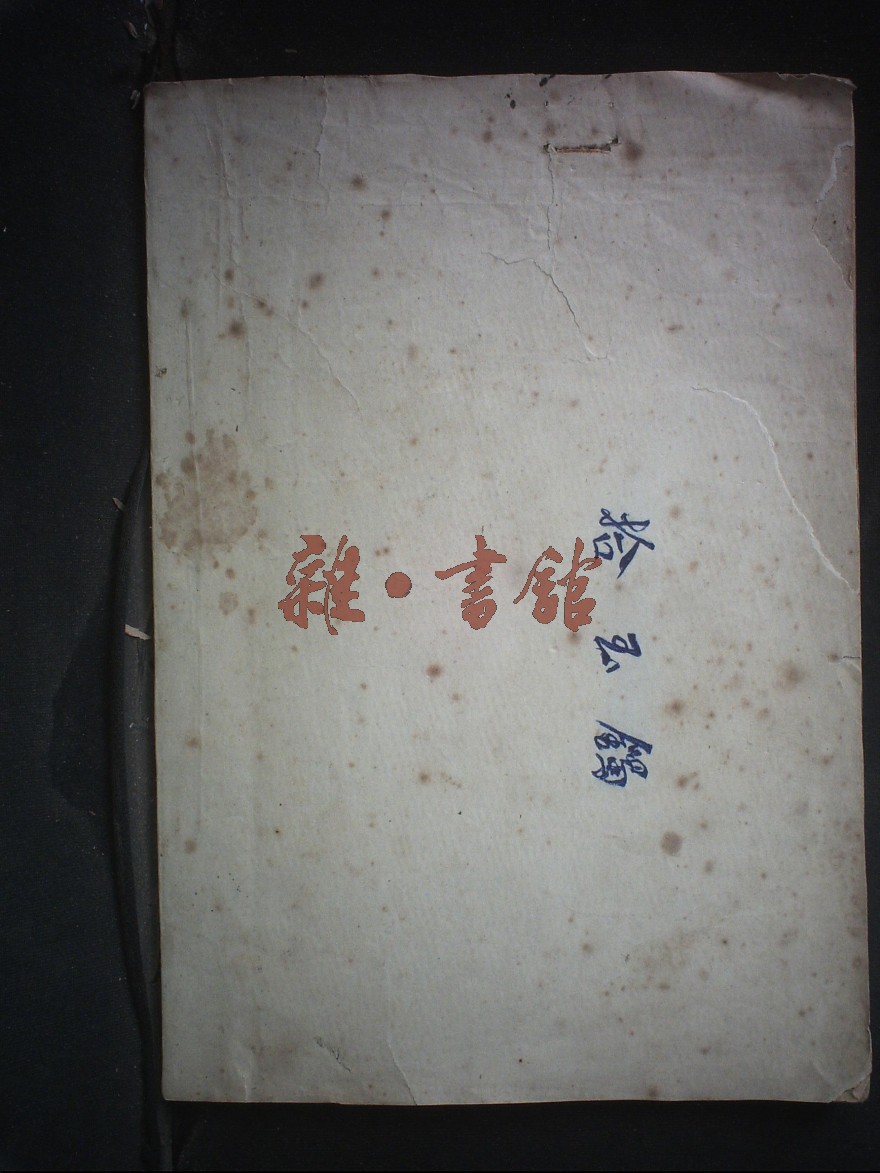 拾玉鐲
雜·書館